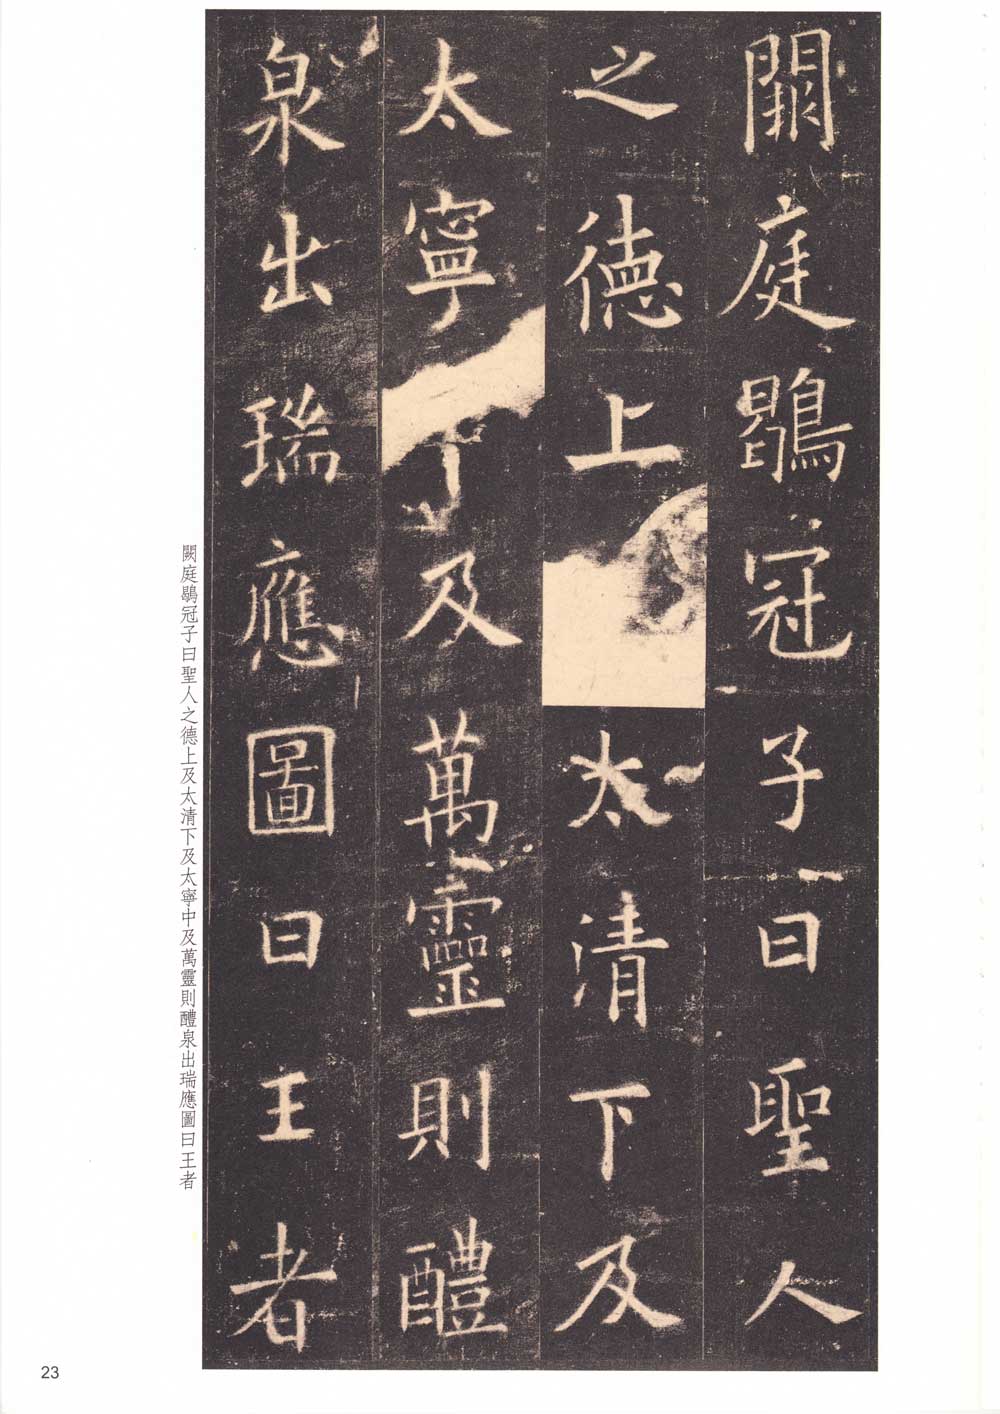 闕庭鶡冠子曰聖人
之德上太清下及
太寧中及萬靈則醴
泉出瑞應圖曰王者
闕庭鶡冠子曰聖人之德上及太清下及太寧中及萬靈則醴泉出瑞應圖曰王者
23